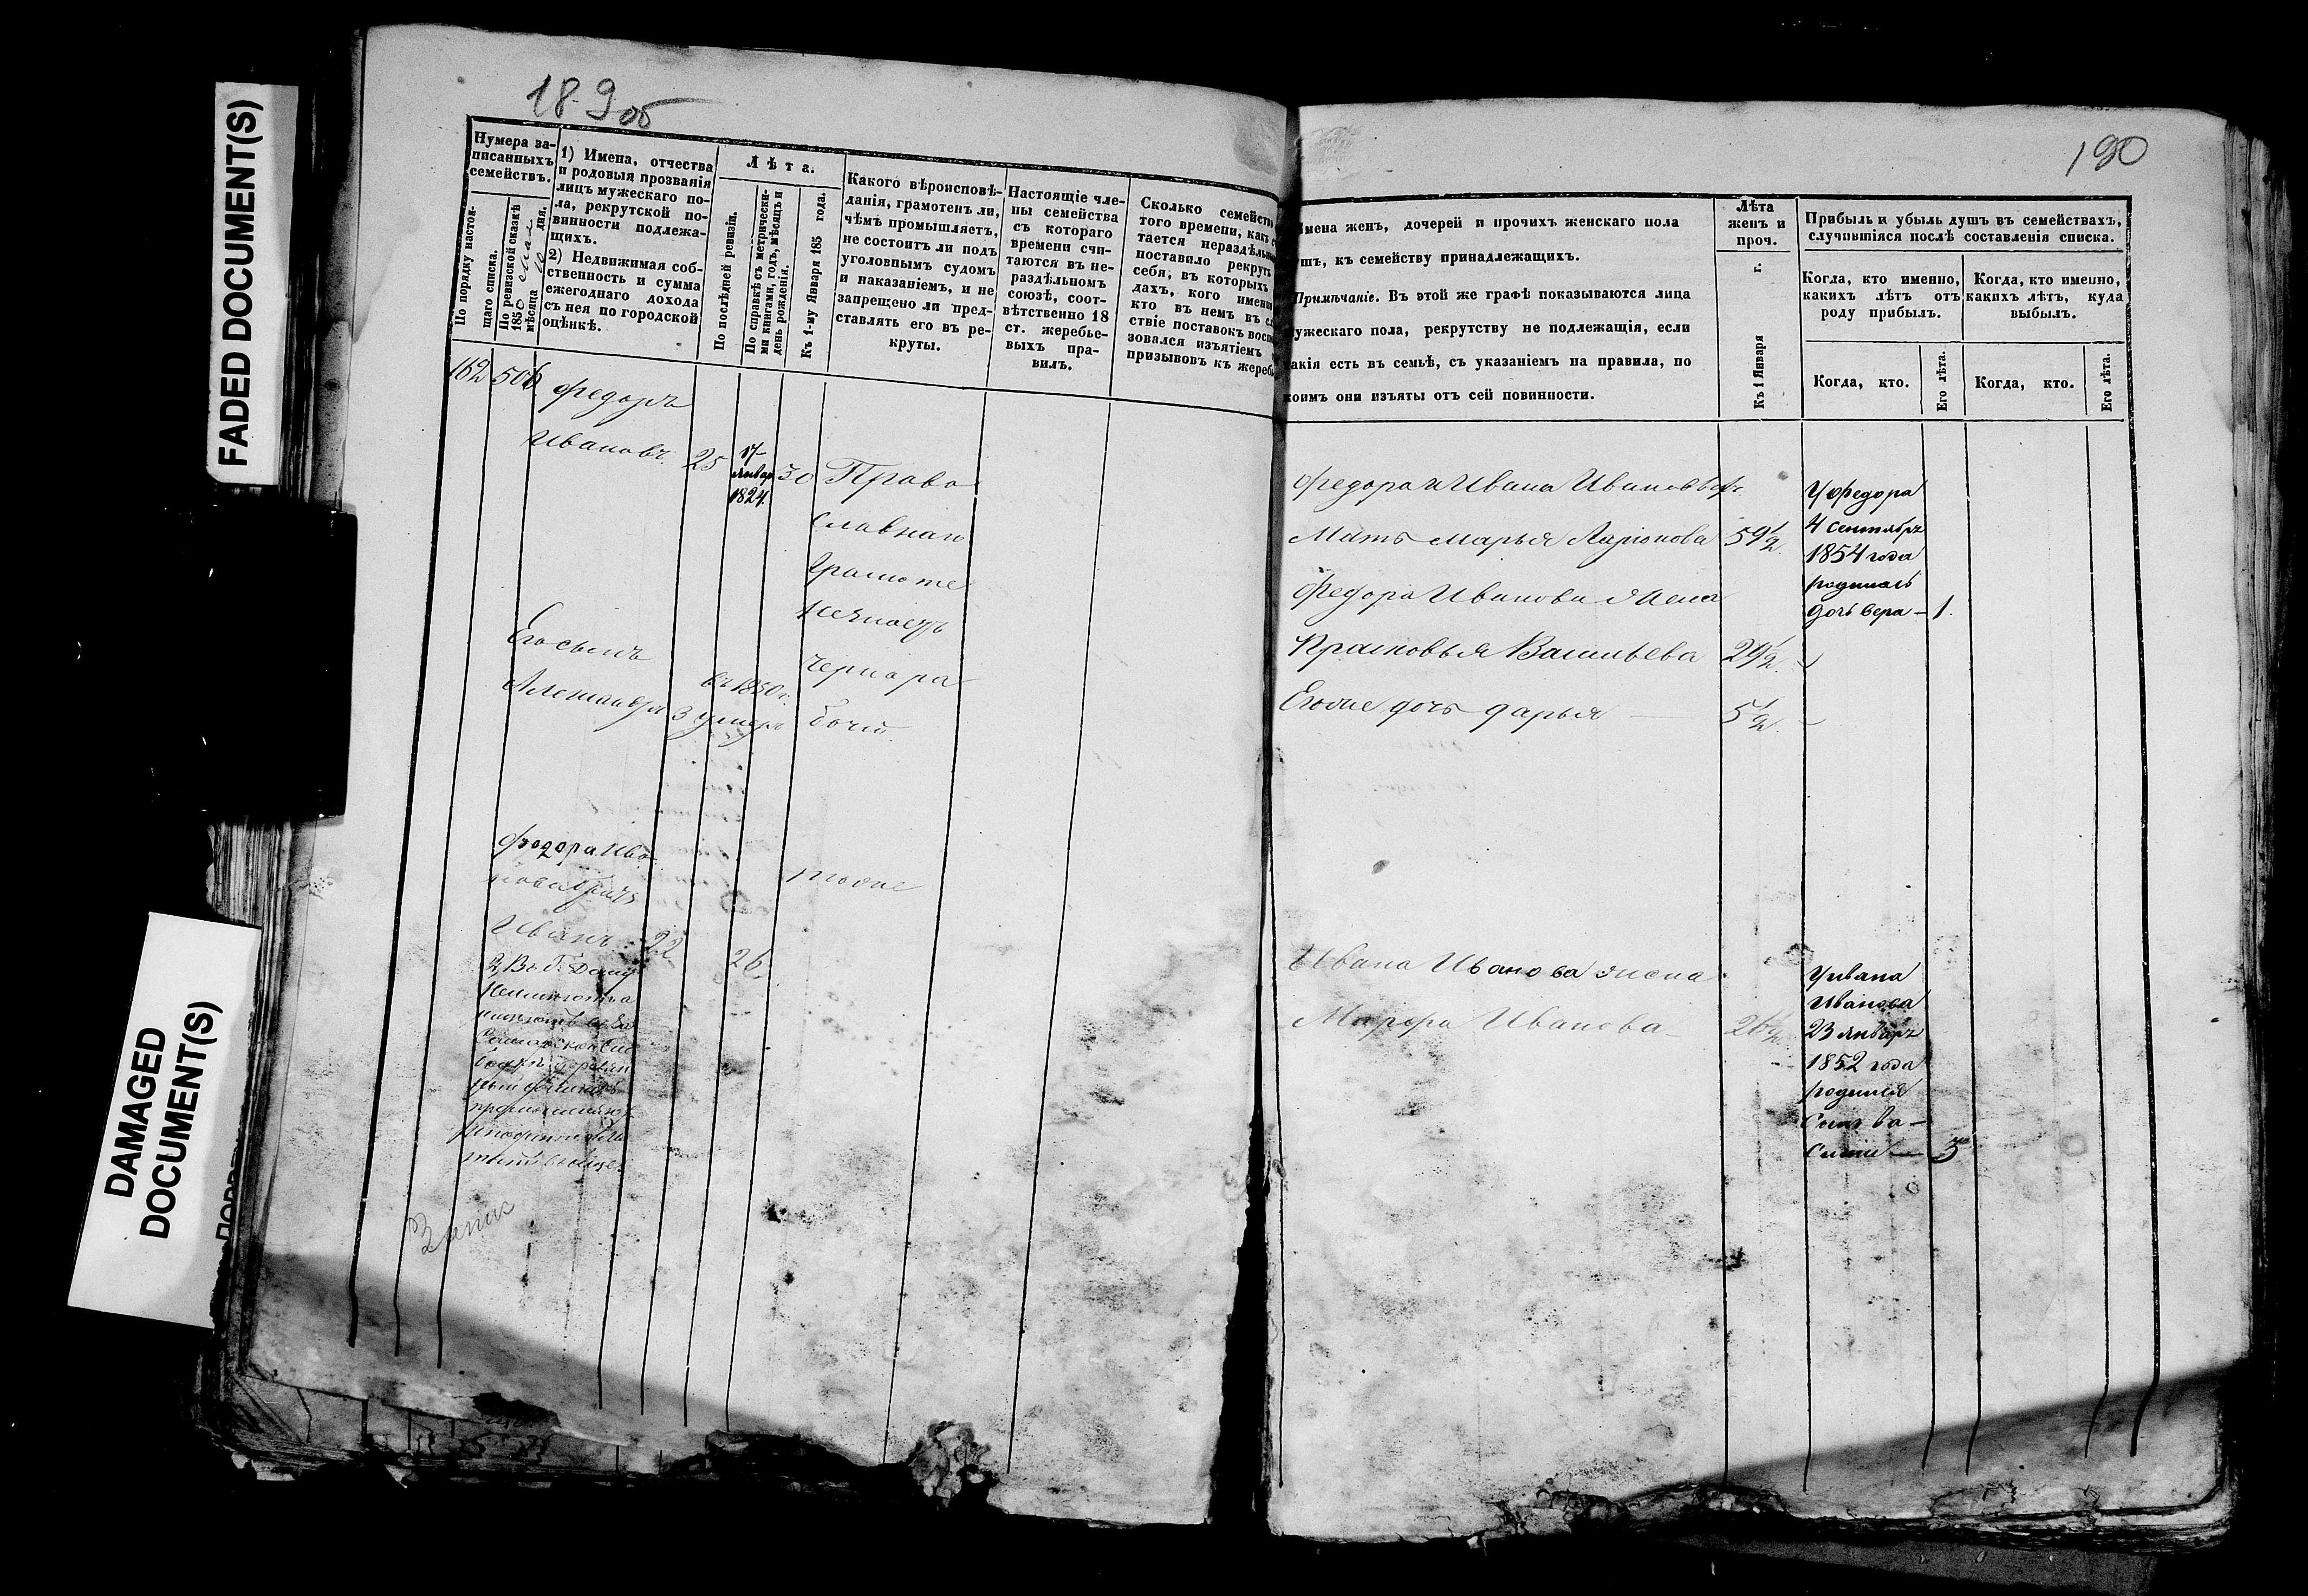 FADED DOCUMENT(S)
DAMAGED
DOCUMENT(S)
189об
Нумера за-
писанныхъ
семействъ.
По порядку настоя-
щаго списка.
По ревизской сказкѣ
1850
мѣсяца дня.
1) Имена, отчества
и родовыя прозванія
лицъ мужескаго по-
ла, рекрутской по-
винности подлежа-
щихъ.
2) Недвижимая соб-
ственность и сумма
ежегоднаго дохода
съ нея по городской
оцѣнкѣ.
Лѣта.
По послѣдней ревизіи.
По справкѣ съ метрически-
ми книгами, годъ, мѣсяцъ и
день рожденія.
Къ 1-му Января 185 года.
Какого вѣроисповѣ-
данія, грамотенъ ли,
чѣмъ промышляетъ,
не состоитъ ли подъ
уголовнымъ судомъ
и наказаніемъ, и не
запрещено ли пред-
ставлять его въ ре-
круты.
Настоящіе чле-
ны семейства
съ котораго
времени счи-
таются въ не-
раздѣльномъ
союзѣ, соот-
вѣтственно 18
ст. жеребье-
выхъ пра-
вилъ.
Сколько семейство
того времени, какъ
тается нераздѣльн
поставило рекрутъ
себя, въ которыхъ
дахъ, кого именно
кто въ немъ въ
ствіе поставокъ восп
зовался изъятіемъ
призывовъ къ жереб
162 506 Федоръ
Ивановъ 25 17 Январ 1824 30 Право
славнаго
Грамоте
незнаетъ
Его сынъ
Александръ 3 въ 1850 г. умеръ
Чернора
бочій
Федора Ива
нова братъ
тоже
Иванъ 22 26
190
Имена женъ, дочерей и прочихъ женскаго пола
душъ, къ семейству принадлежащихъ.
Примѣчаніе. Въ этой же графѣ показываются лица
мужескаго пола, рекрутству не подлежащія, если
такія есть въ семьѣ, съ указаніемъ на правила, по
коимъ они изъяты отъ сей повинности.
Лѣта
женъ и
проч.
Къ 1 Января г.
Прибыль и убыль душъ въ семействахъ,
случившіяся послѣ составленія списка.
Когда, кто именно,
какихъ лѣтъ отъ
роду прибылъ.
Когда, кто именно,
какихъ лѣтъ, куда
выбылъ.
Когда, кто.
Его лѣта.
Когда, кто.
Его лѣта.
Федора и Ивана Ивановыхъ
Мать Марья Ларіонова 59½
Федора Иванова Жена
Прасковья Васильева 29½
Егоже дочь дарья 5½
У Федора
4 сентября
1854 года
родилась
дочь вера — 1.
Ивана Иванова жена
Марфа Иванова 26½
У ивана
Иванова
23 январѣ
1852 года
родился
Сынъ Ва-
силій — 3